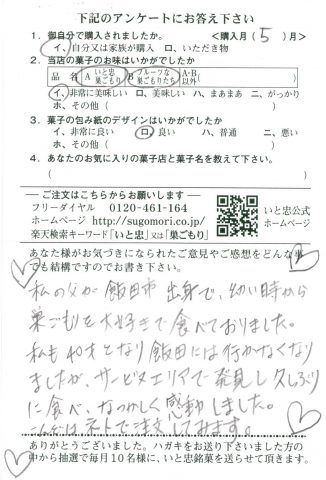 下記のアンケートにお答え下さい
1. 御自分で購入されましたか。 <購入月(5)月>
イ、自分又は家族が購入 ロ、いただき物
2. 当店の菓子のお味はいかがでしたか
品名 A いと忠巣ごもり B ブルーツな巣ごもりたち A・B以外( )
イ、非常に美味しい ロ、美味しい ハ、まあまあ ニ、がっかり
ホ、その他( )
3. 菓子の包み紙のデザインはいかがでしたか
イ、非常に良い ロ、良い ハ、普通 ニ、悪い
ホ、その他( )
4. あなたのお気に入りの菓子店と菓子名を教えて下さい。
( )
ご注文はこちらからお願いします
フリーダイヤル 0120-461-164
ホームページ http://sugomori.co.jp/
楽天検索キーワード「いと忠」又は「巣ごもり」
いと忠公式ホームページ
あなた様がお気づきになられたご意見やご感想をどんな事
でも結構ですのでお書き下さい。
私の父が飯田市出身で、幼い時から
巣ごもりを大好きで食べておりました。
私も40才となり飯田には行かなくなり
ましたが、サービスエリアで発見し久しぶり
に食べ、なつかしく感動しました。
こんどはネットで注文してみます。
ありがとうございました。ハガキをお送り下さいました方の
中から抽選で毎月10名様に、いと忠銘菓を送らせて頂きます。